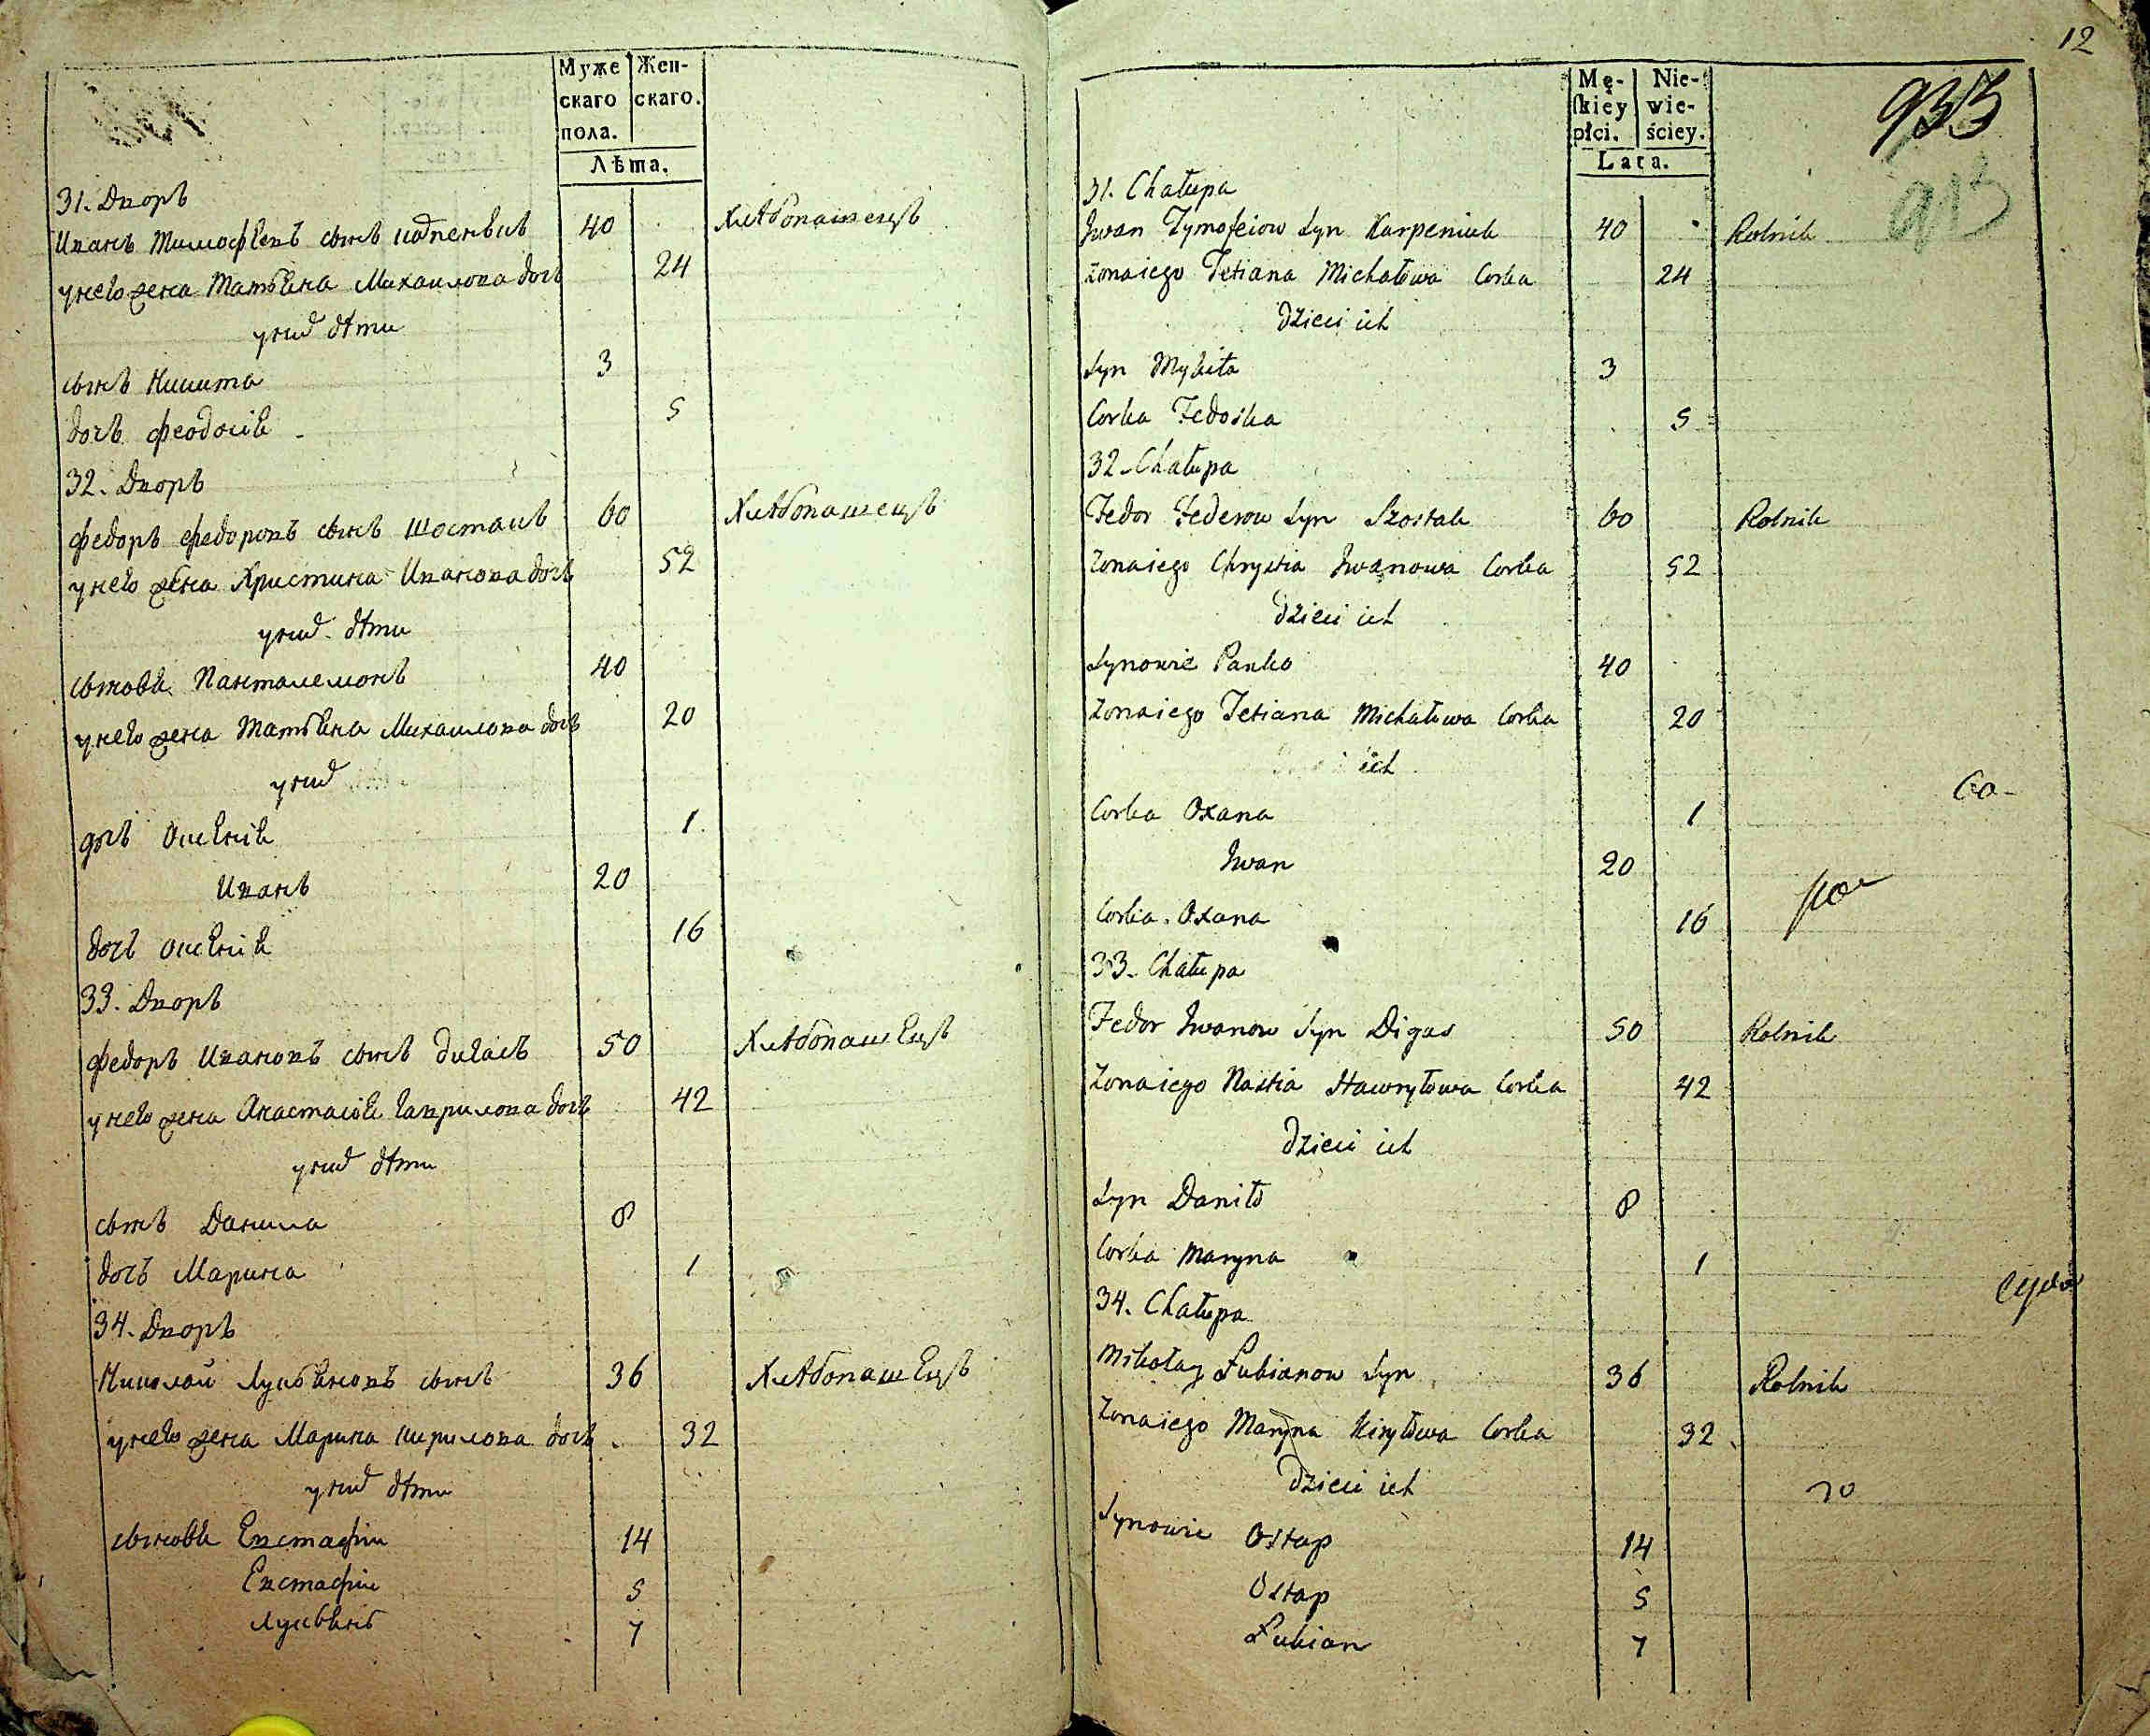 Муже
скаго
пола.
Жен-
скаго.
Лѣта.
31. Дворъ
Иванъ Тимофѣевъ сынъ Карпенвкъ 40 Хлѣбопашецъ
у него жена Татьѣна Михаилова дочь 24
у них дѣти
сынъ Никита 3
дочь Феодосiѣ 5
32. Дворъ
Федоръ Федоровъ сынъ Шостакъ 60 Хлѣбопашецъ
у него жена Христина Иванова дочь 52
у них дѣти
сыновѣ Панталемонъ 40
у него жена Татьѣна Михаилова дочь 20
у них
дочь Оксѣнiѣ 1
Иванъ 20
дочь Оксѣнiѣ 16
33. Дворъ
Федоръ Ивановъ сынъ Дигасъ 50 Хлѣбопашѣцъ
у него жена Анастасiѣ Гаврилова дочь 42
у них дѣти
сынъ Данила 8
дочь Марина 1
34. Дворъ
Николай Лукьѣновъ сынъ 36 Хлѣбопашѣцъ
у него жена Марина Кирилова дочь 32
у них дѣти
сыновѣ Евстафiи 14
Евстафiи 5
Лукьѣнъ 7
12
Mę-
skiey
płci.
Nie-
wie-
ściey.
Lata.
933
913
31. Chałupa
Jwan Tymofeiow Syn Karpeniuk 40 Rolnik
Żona iego Tetiana Michałowa Corka 24
dzieci ich
Syn Mykita 3
Corka Fedośka 5
32. Chałupa
Fedor Federow Syn Szostak 60 Rolnik
Żona iego Chrystia Jwanowa Corka 52
dzieci ich
Synowie Panko 40
Żona iego Tetiana Michałowa Corka 20
ich
Corka Oxana 1
Jwan 20
Corka Oxana 16
33. Chałupa
Fedor Jwanow Syn Digas 50 Rolnik
Żona iego Nastia Hawryłowa Corka 42
dzieci ich
Syn Daniło 8
Corka Maryna 1
34. Chałupa
Mikołay Łukianow Syn 36 Rolnik
Żona iego Maryna Kiryłowa Corka 32
dzieci ich
Synowie Ostap 14
Ostap 5
Łukian 7